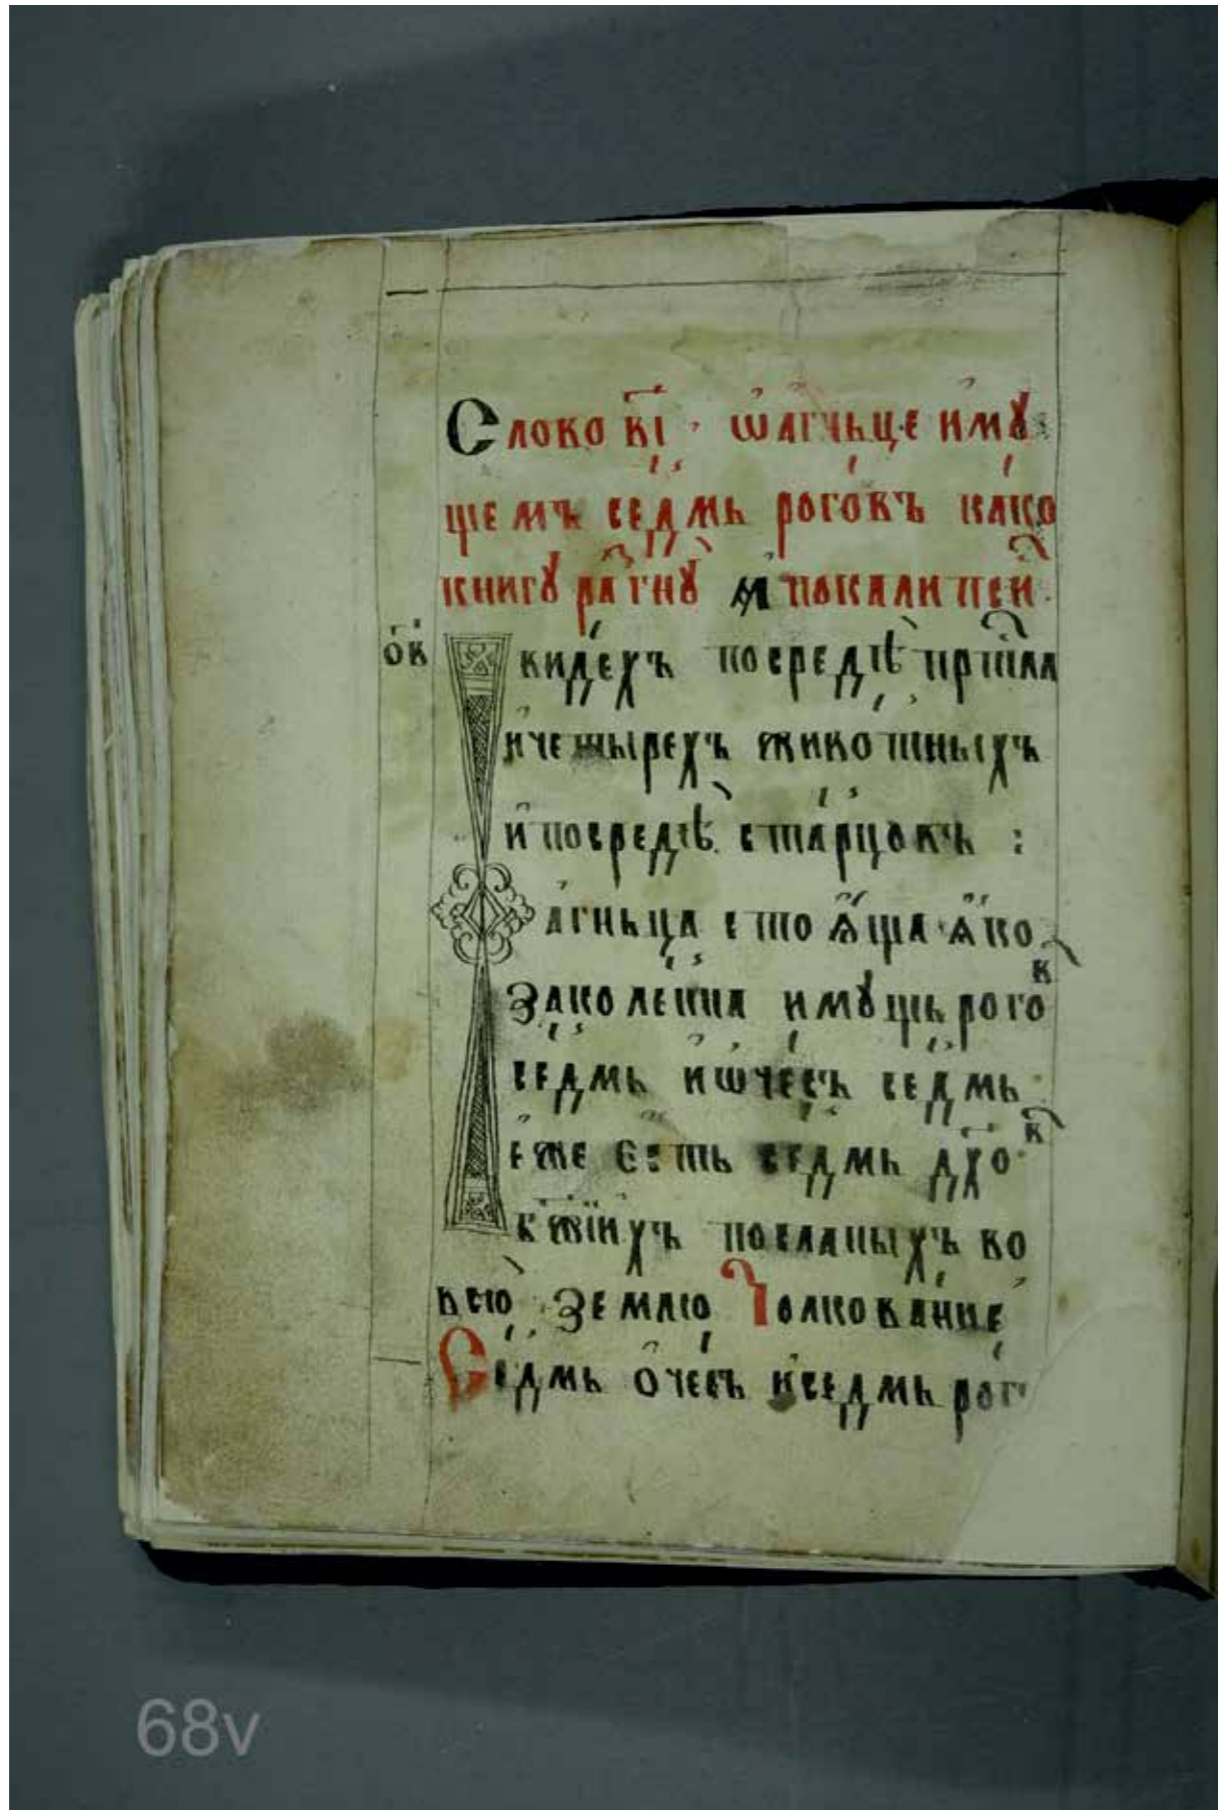 Слово в҃і · ѡ҆а҆гньце и҆мꙋ
щемъ се́дмь рого́въ како
книгꙋ ра҃гнꙋ а҆покалипси
о҃в
И видехъ посредѣ прⷭ҇тла
и҆четырехъ животныхъ
и҆ посредѣ ста́рцовъ :
а҆гньца стоѧ҆ща ꙗ҆ко
заколенна и҆мꙋщь рогоⷡ
се́дмь и҆ѡ҆че́съ се́дмь ·
е҆же є҆сть се́дмь дх҃оⷡ
бж҃їихъ посланыхъ во
всю̀ землю Толкова́ние
Се́дмь о҆че́съ и҆се́дмь рог
68v